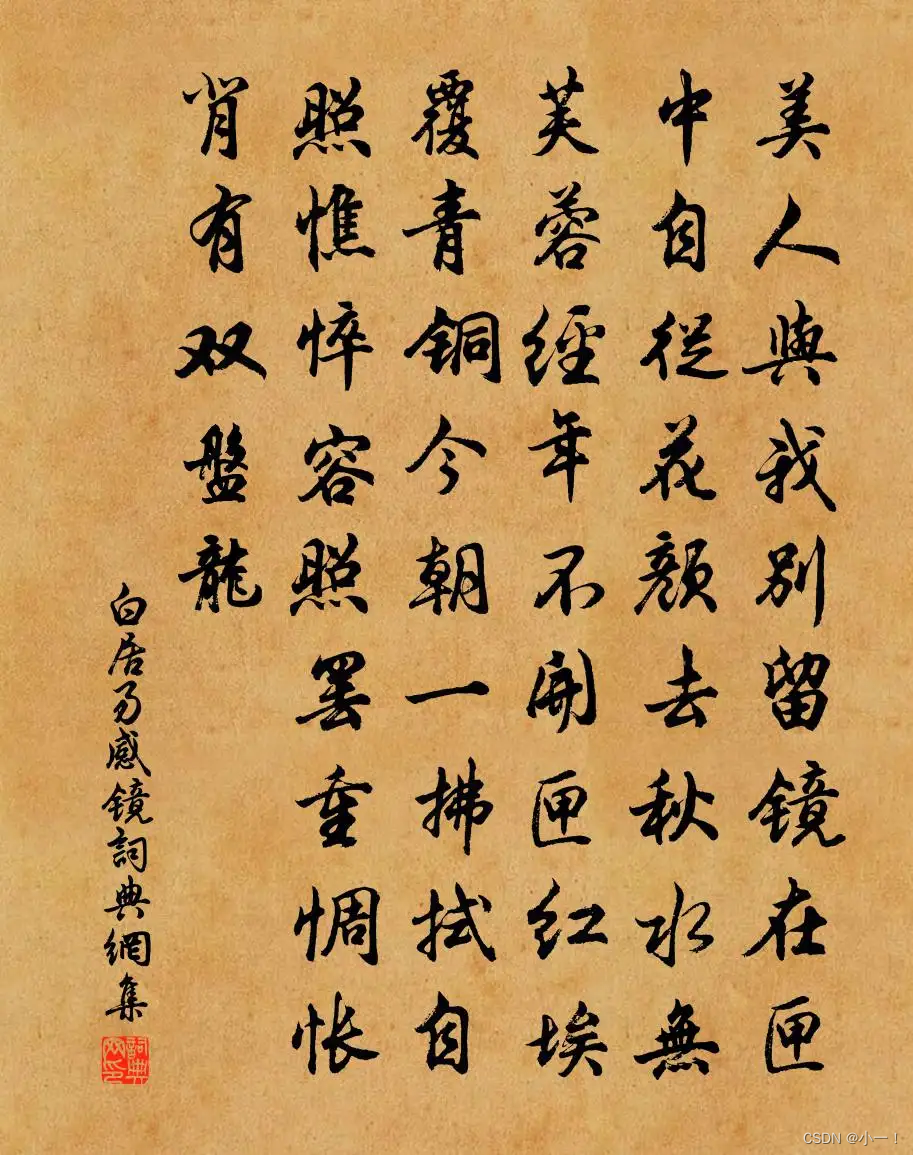 美人與我別留镜在匣
中自從花顔去秋水無
芙蓉經年不開匣红埃
覆青铜今朝一拂拭自
照憔悴容照罢重惆怅
背有双盤龍
白居易感镜詞典網集
詞典網印
CSDN @小一！